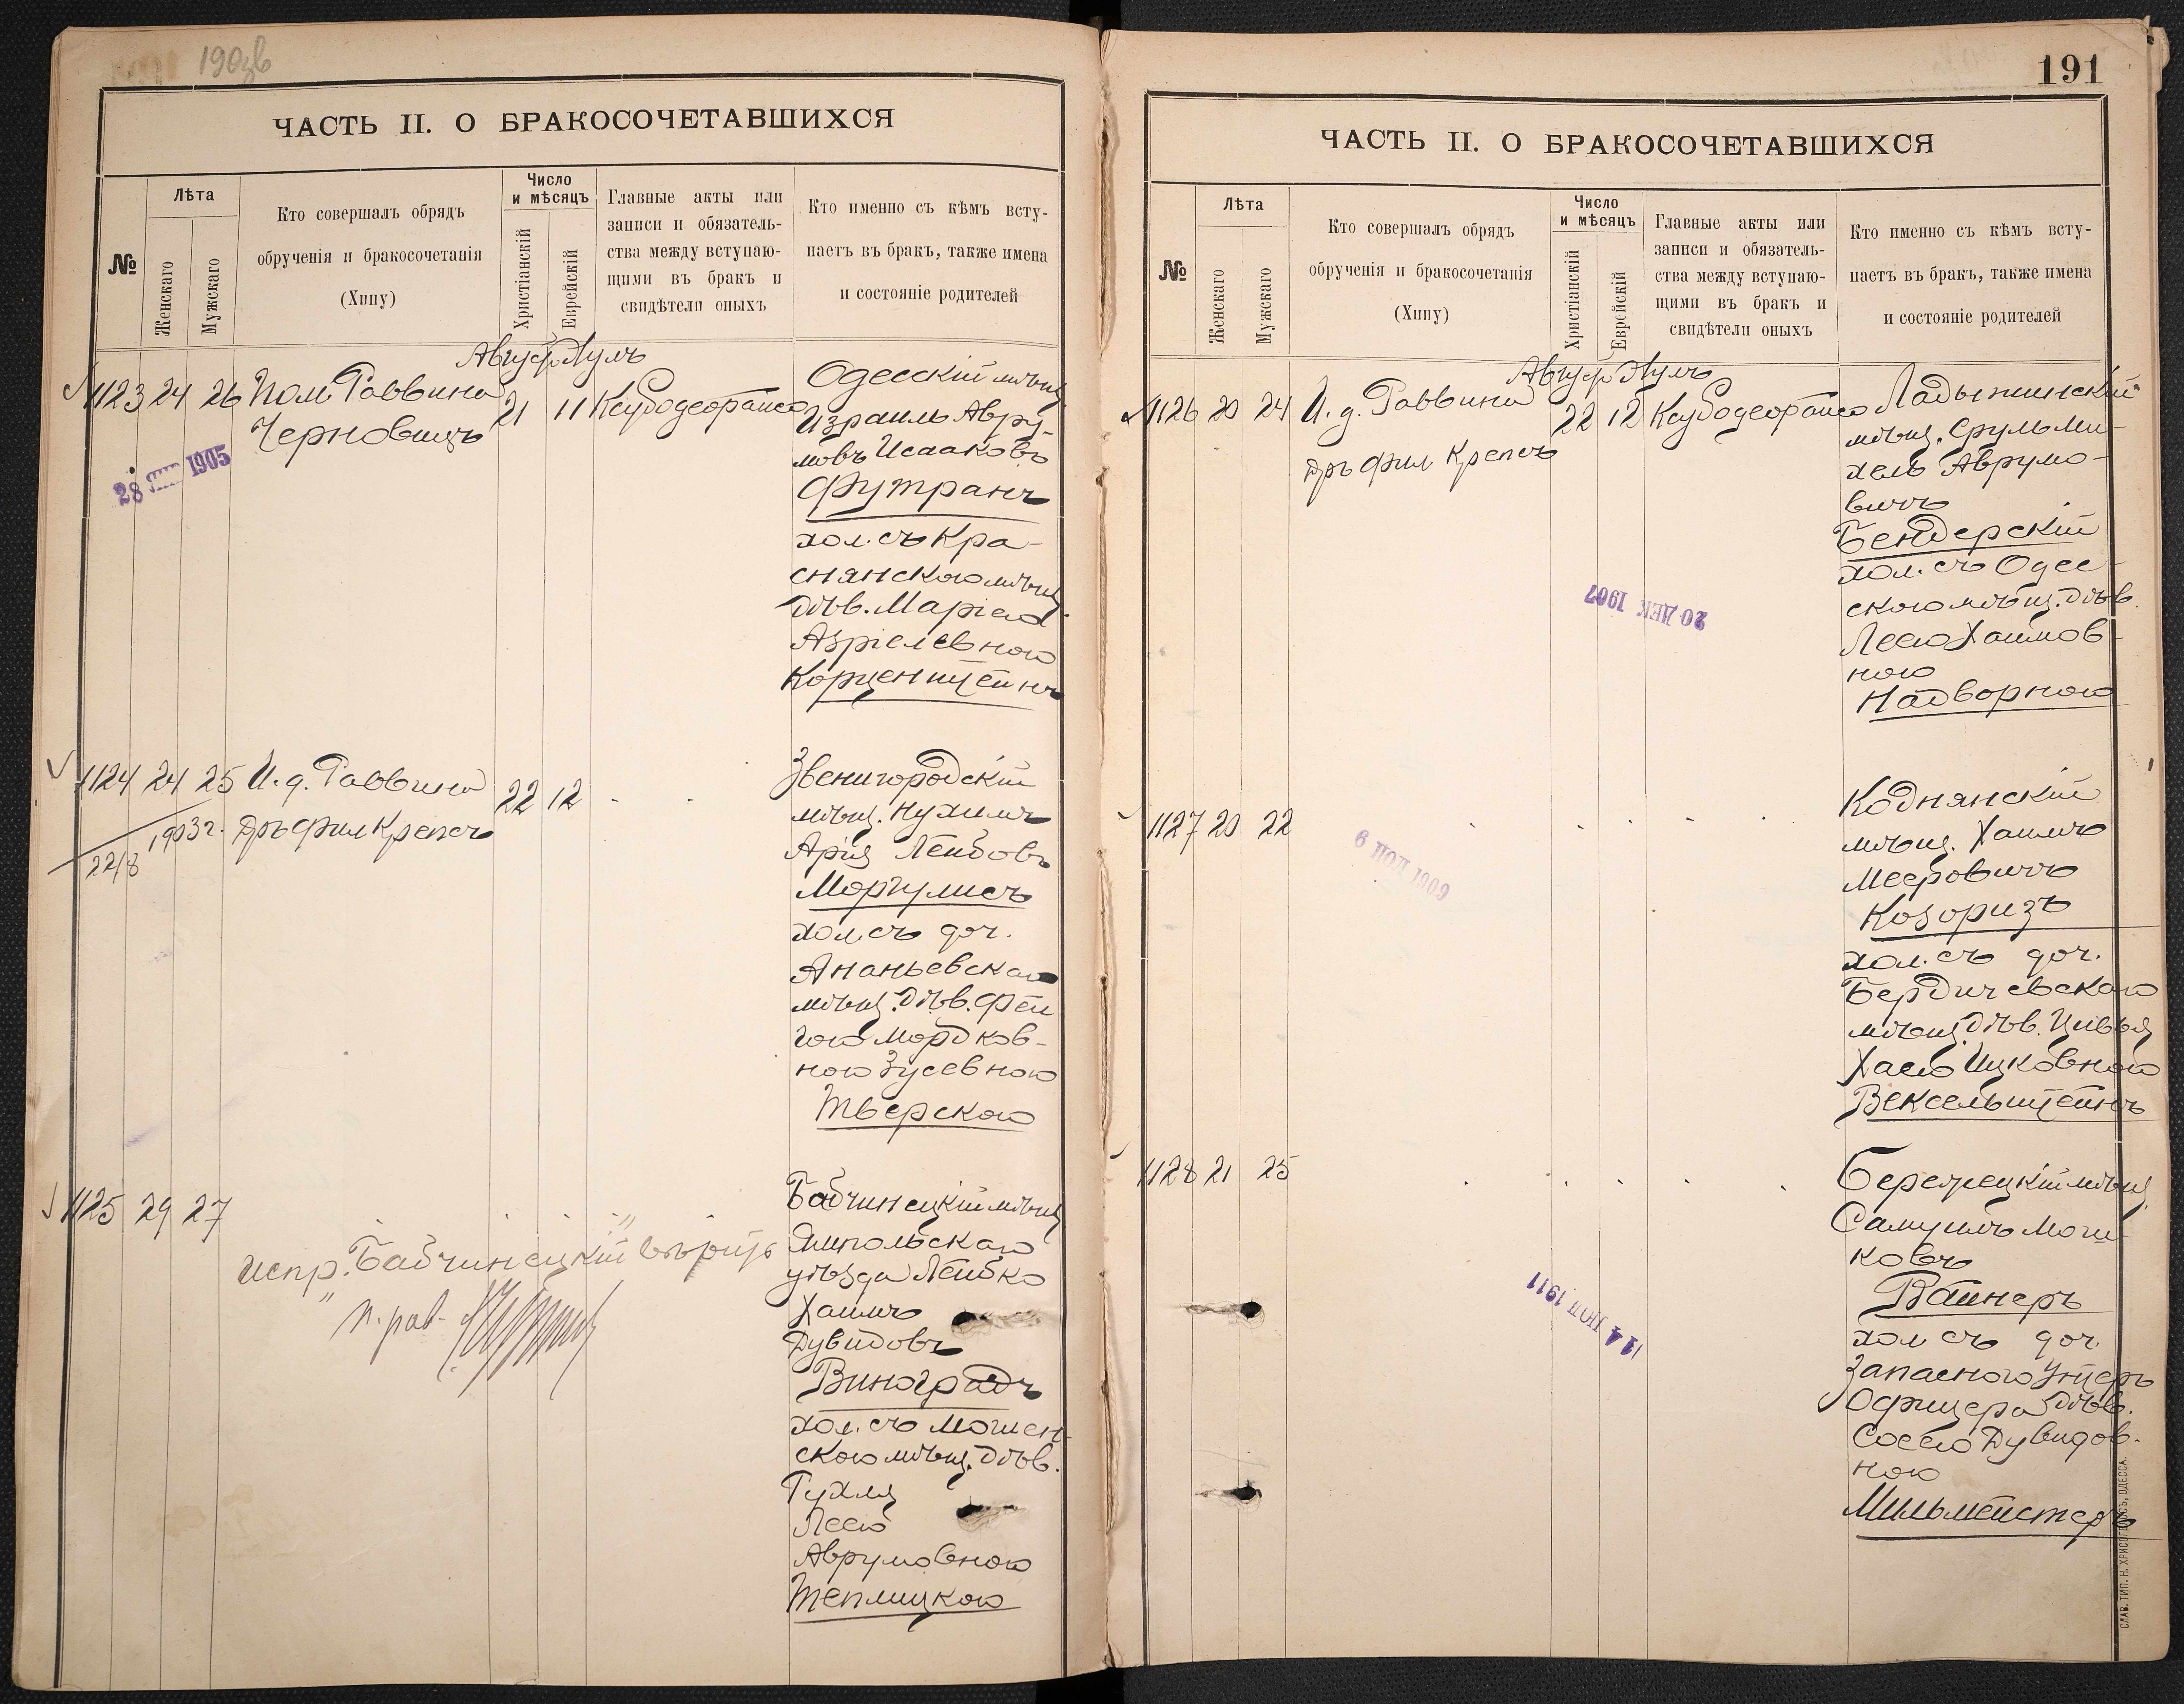 190зв
ЧАСТЬ II. О БРАКОСОЧЕТАВШИХСЯ
№
Лѣта
Женскаго
Мужскаго
Кто совершалъ обрядъ
обрученія и бракосочетанія
(Хипу)
Число
и мѣсяцъ
Христіанскій
Еврейскій
Главные акты или
записи и обязатель-
ства между вступаю-
щими въ бракъ и
свидѣтели оныхъ
Кто именно съ кѣмъ всту-
паетъ въ бракъ, также имена
и состояніе родителей
Август Аулъ
1123 24 26 Пом. Раввина
Черновицъ
21 11
28 1905
Одесскій мѣщ.
Израиль Авру-
мовъ Исааковъ
Футранъ
хол. съ Кра-
снянскою мѣщ.
дѣв. Маріею
Азріелевною
Корценштейнъ
1124 24 25 И. д. Раввина
22/8 1903 г. Дръ Фил Крепсъ
22 12
Звенигородскій
мѣщ. Нухимъ
Арія Лейбовъ
Моргулисъ
хол. съ доч.
Ананьевскаго
мѣщ. дѣв. Фей
гою Мордков-
ною Зусевною
Тверскою
1125 29 27
испр. "Бабчинецкій" вѣрить
п. рав.
Бабчинецкій мѣщ
Ямпольскаго
уѣзда Лейбко
Хаимъ
Дувидовъ
Виноградъ
хол. съ Мошен-
скою мѣщ. дѣв.
Рухля
Леею
Аврумовною
Теплицкою
191
ЧАСТЬ II. О БРАКОСОЧЕТАВШИХСЯ
№
Лѣта
Женскаго
Мужскаго
Кто совершалъ обрядъ
обрученія и бракосочетанія
(Хипу)
Число
и мѣсяцъ
Христіанскій
Еврейскій
Главные акты или
записи и обязатель-
ства между вступаю-
щими въ бракъ и
свидѣтели оныхъ
Кто именно съ кѣмъ всту-
паетъ въ бракъ, также имена
и состояніе родителей
Август Аулъ
1126 20 24 И. д. Раввина
Дръ Фил Крепсъ
22 12
20 ДЕК 1907
Ладыжинскій
мѣщ. Сруль Ми-
хель Аврумо-
вичъ
Бендерскій
хол. съ Одес-
скою мѣщ. дѣв.
Леею Хаимов-
ною
Надворною
1127 20 22
1909
Коднянскій
мѣщ. Хаимъ
Мееровичъ
Козоризъ
хол. съ доч.
Бердичевскаго
мѣщ. дѣв. Цивья
Хаею Ицковною
Вексельштейнъ
1128 21 25
1911
Березецкій мѣщ.
Самуилъ Мош-
ковъ
Вайнеръ
хол съ доч.
Запаснаго Унтеръ
Офицера дѣв.
Сосею Дувидов-
ною
Мильмейстеръ
СЛАВ. ТИП. Н. ХРИСОГЕЛОСЪ, ОДЕССА.